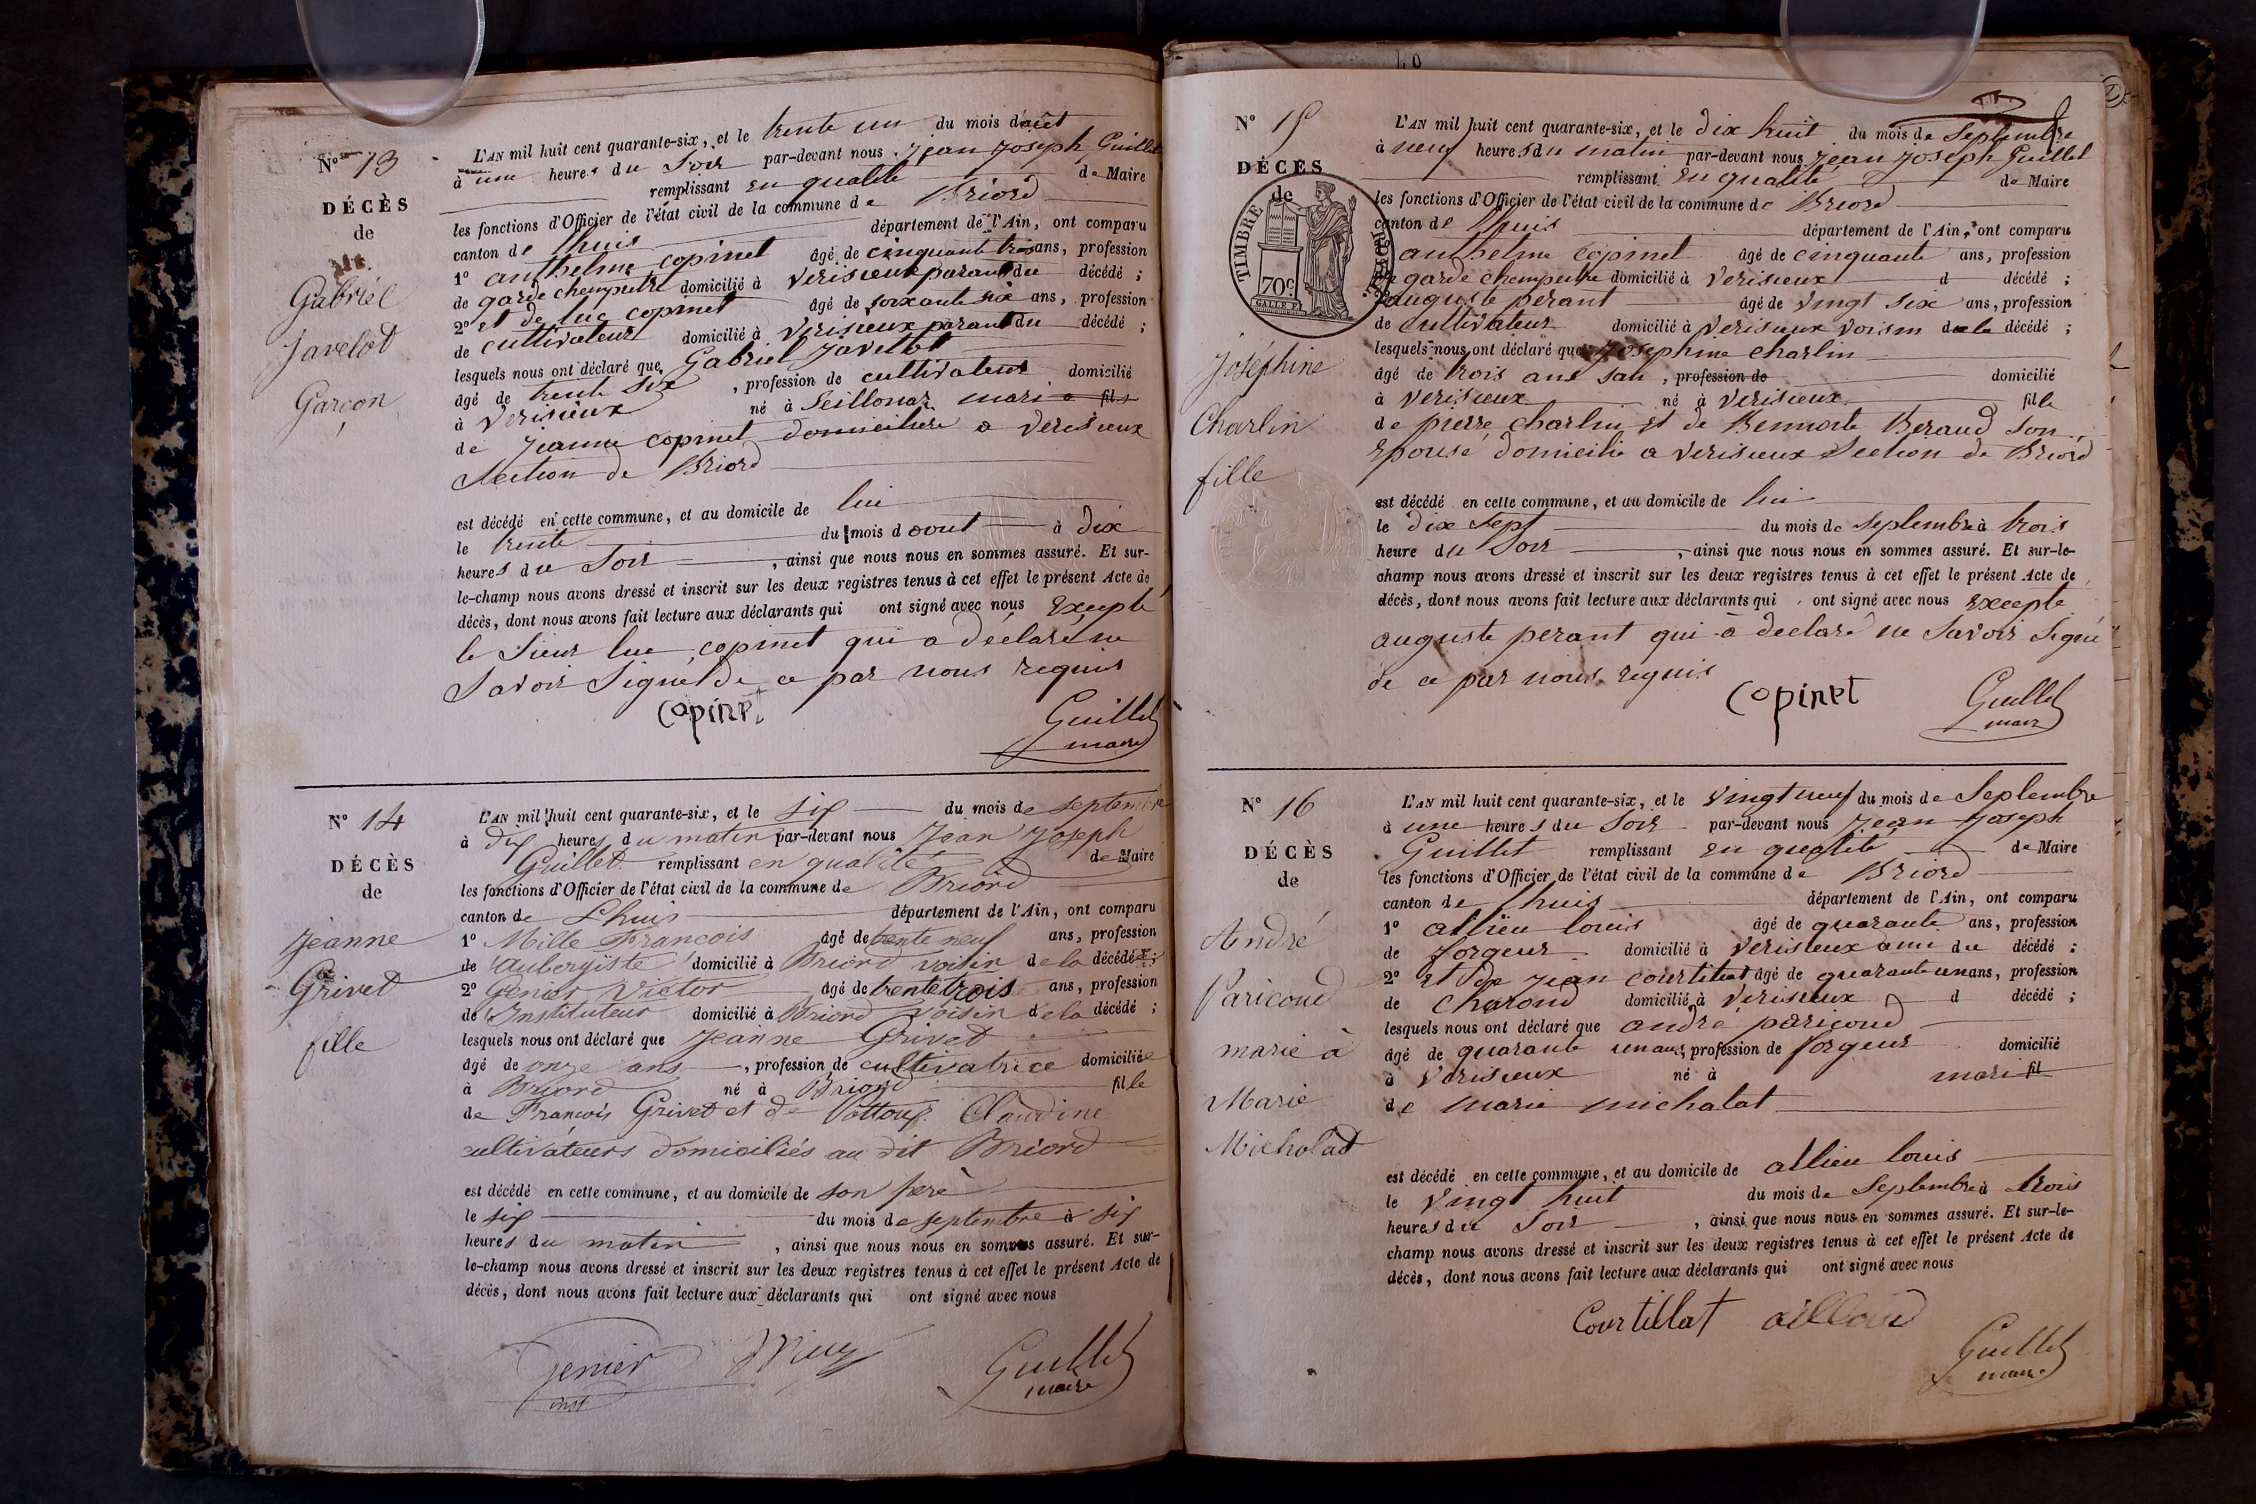 N° 13
DÉCÈS
de
Gabriel
Javelot
Garçon
L'AN mil huit cent quarante-six, et le trente un du mois d'août
à une heures du Soir par-devant nous Jean Joseph Guillet
remplissant en qualité de Maire
les fonctions d'Officier de l'état civil de la commune de Briord
canton de Lhuis département de l'Ain, ont comparu
1° anthelme copinet âgé de cinquante trois ans, profession
de garde champetre domicilié à Verisieux parant du décédé ;
2° et de luc copinet âgé de soixante six ans, profession
de cultivateur domicilié à Verisieux parant du décédé ;
lesquels nous ont déclaré que Gabriel Javellot
âgé de trente six , profession de cultivateur domicilié
à Verisieux né à Seillonaz mari a fils
de Jeanne copinet domiciliere a Verisieux
Section de Briord
est décédé en cette commune, et au domicile de lui
le trente du mois d aout à dix
heures du Soir , ainsi que nous nous en sommes assuré. Et sur-
le-champ nous avons dressé et inscrit sur les deux registres tenus à cet effet le présent Acte de
décès, dont nous avons fait lecture aux déclarants qui ont signé avec nous Excepté
le Sieur luc copinet qui a déclaré ne
Savoir Signé de ce par nous requis
Copinet
Guillet
maire
N° 14
DÉCÈS
de
Jeanne
Grivet
fille
L'AN mil huit cent quarante-six, et le six du mois de septembre
à dix heures du matin par-devant nous Jean Joseph
Guillet remplissant en qualité de Maire
les fonctions d'Officier de l'état civil de la commune de Briord
canton de Lhuis département de l'Ain, ont comparu
1° Mille Francois âgé de trente neuf ans, profession
de Aubergiste domicilié à Briord voisin de la décédée ;
2° Genier Victor âgé de trente trois ans, profession
de Instituteur domicilié à Briord voisin de la décédé ;
lesquels nous ont déclaré que Jeanne Grivet
âgé de onze ans , profession de cultivatrice domiciliée
à Briord né à Briord fille
de François Grivet et de Claudine
cultivateurs domiciliés au dit Briord
est décédé en cette commune, et au domicile de son père
le six du mois de septembre à six
heures du matin , ainsi que nous nous en sommes assuré. Et sur-
le-champ nous avons dressé et inscrit sur les deux registres tenus à cet effet le présent Acte de
décès, dont nous avons fait lecture aux déclarants qui ont signé avec nous
Genier
inst
Guillet
maire
N° 15
DÉCÈS
de
TIMBRE ROYAL
70c.
Joséphine
Charlin
fille
L'AN mil huit cent quarante-six, et le dix huit du mois de Septembre
à neuf heures du matin par-devant nous Jean Joseph Guillet
remplissant en qualité de Maire
les fonctions d'Officier de l'état civil de la commune de Briord
canton de Lhuis département de l'Ain, ont comparu
anthelme Copinet âgé de cinquante ans, profession
de garde champetre domicilié à Verisieux d décédé ;
auguste perant âgé de vingt six ans, profession
de Cultivateur domicilié à Verisieux voisin de la décédé ;
lesquels nous ont déclaré que Josephine charlin
âgé de trois ans , profession de domicilié
à Verisieux né à Verisieux fille
de pierre charlin et de Beraud Son
Epouse domicilié a Verisieux Section de Briord
est décédé en cette commune, et au domicile de lui
le dix Sept du mois de Septembre à trois
heure du Soir , ainsi que nous nous en sommes assuré. Et sur-le-
champ nous avons dressé et inscrit sur les deux registres tenus à cet effet le présent Acte de
décès, dont nous avons fait lecture aux déclarants qui ont signé avec nous Excepté
auguste perant qui a déclaré ne Savoir Signé
de ce par nous requis
Copinet
Guillet
maire
N° 16
DÉCÈS
de
André
Paricoud
marié à
Marie
Micholat
L'AN mil huit cent quarante-six, et le vingt neuf du mois de Septembre
à une heures du Soir par-devant nous Jean Joseph
Guillet remplissant en qualité de Maire
les fonctions d'Officier de l'état civil de la commune de Briord
canton de Lhuis département de l'Ain, ont comparu
1° allieu louis âgé de quarante ans, profession
de forgeur domicilié à Verisieux ami du décédé ;
2° et de Jean courtillat âgé de quarante un ans, profession
de Charond domicilié à Verisieux d décédé ;
lesquels nous ont déclaré que andré paricoud
âgé de quarante un ans, profession de forgeur domicilié
à Verisieux né à mari fil
de marie michalat
est décédé en cette commune, et au domicile de allieu louis
le vingt huit du mois de Septembre à trois
heures du Soir , ainsi que nous nous en sommes assuré. Et sur-le-
champ nous avons dressé et inscrit sur les deux registres tenus à cet effet le présent Acte de
décès, dont nous avons fait lecture aux déclarants qui ont signé avec nous
Courtillat ailloud
Guillet
maire